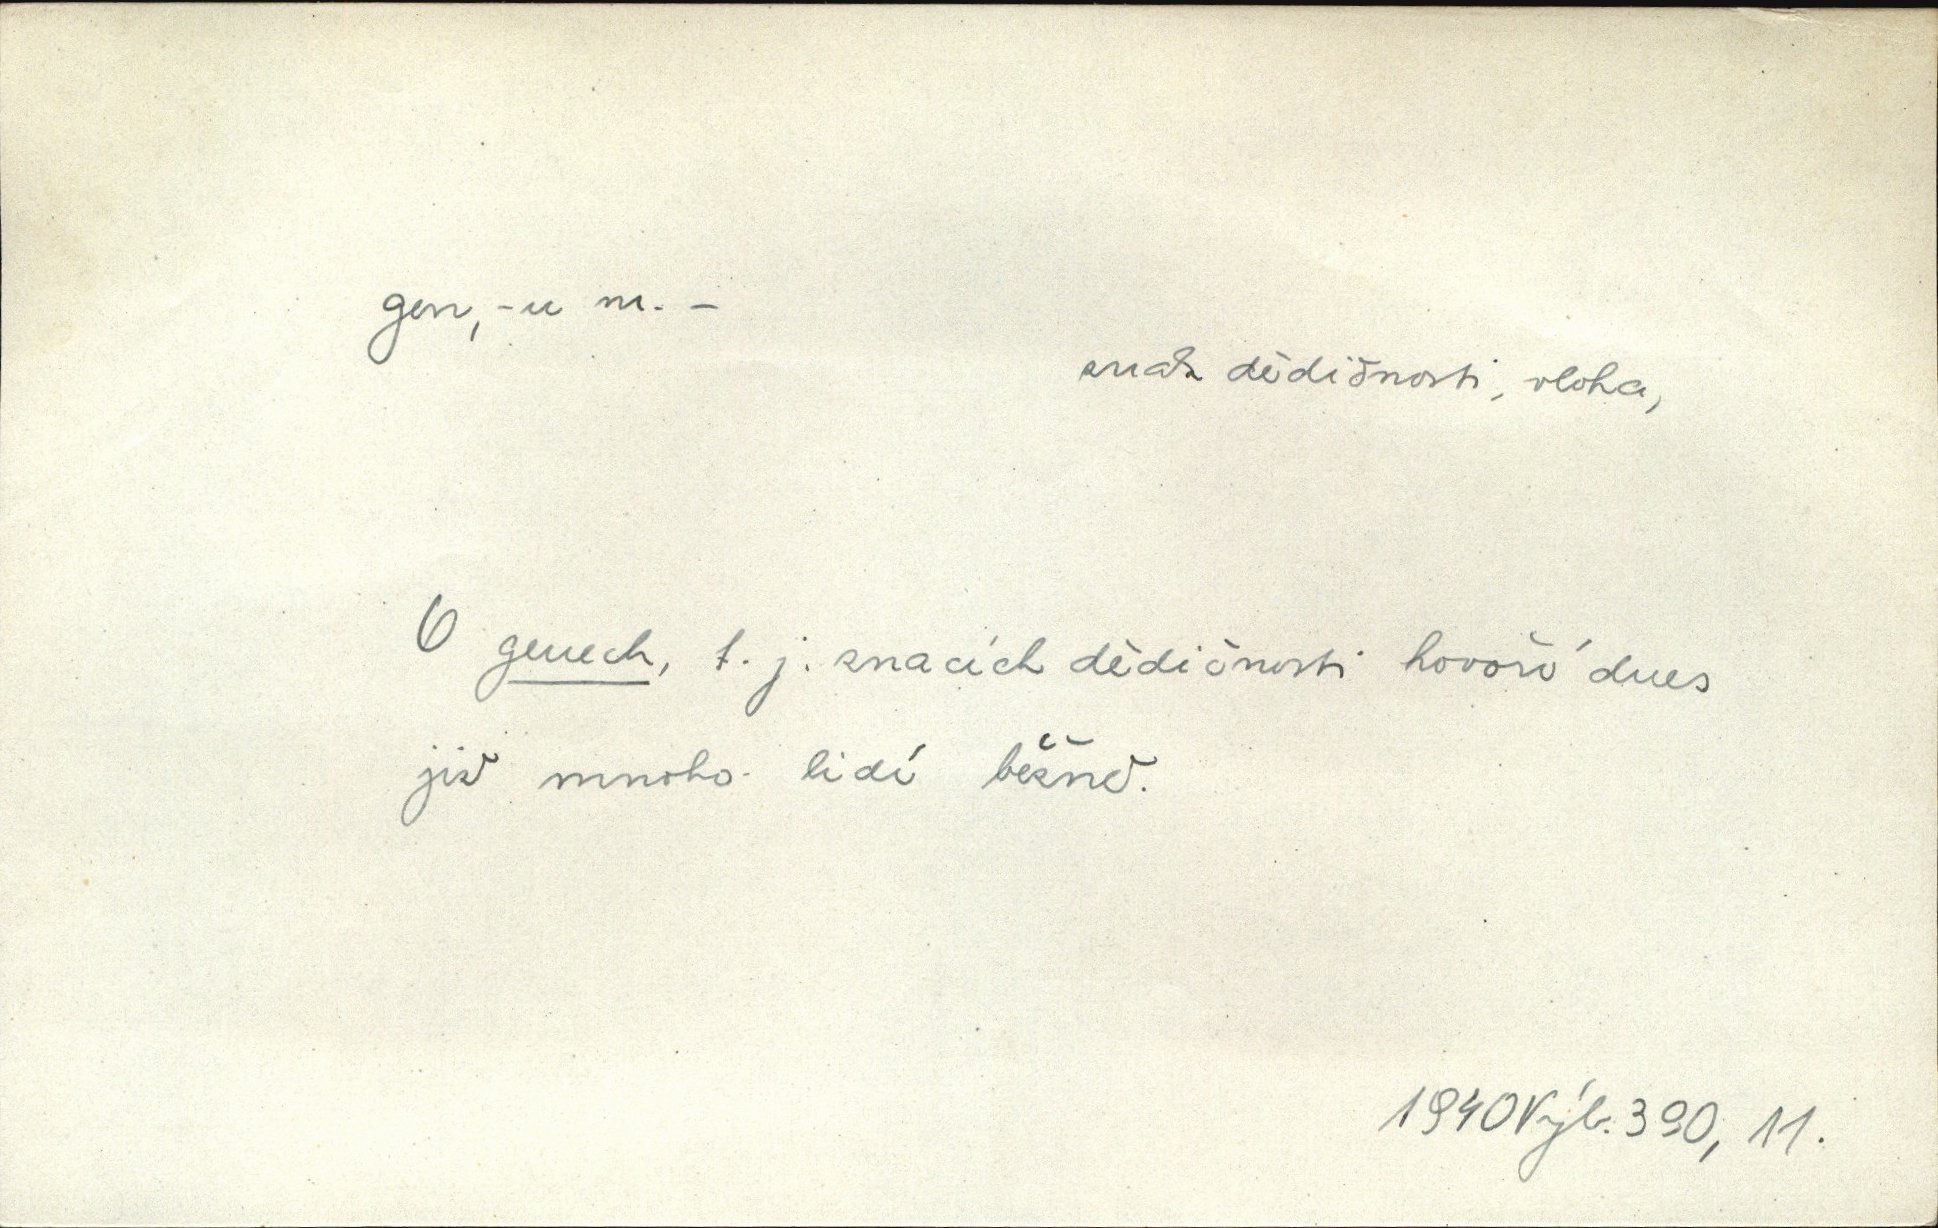 gen, -u m. -
znak dědičnosti, vloha,
O genech, t. j. znacích dědičnosti hovoří dnes
již mnoho lidí běžně.
1940 Výb. 390, 11.